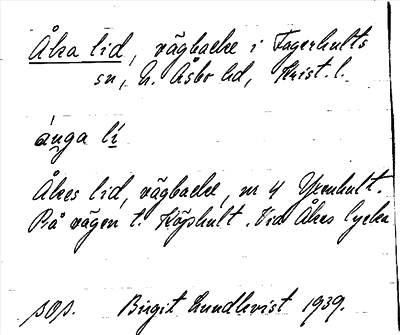 Åka lid, vägbacke i Fagerhults
sn, N. Åsbo hd, Krist. l.
ánga lí
Åkes lid, vägbacke, nr 4 Ysenhult.
På vägen t. Köphult. Vid Åkes lycka
sop. Birgit Lundkvist 1939.